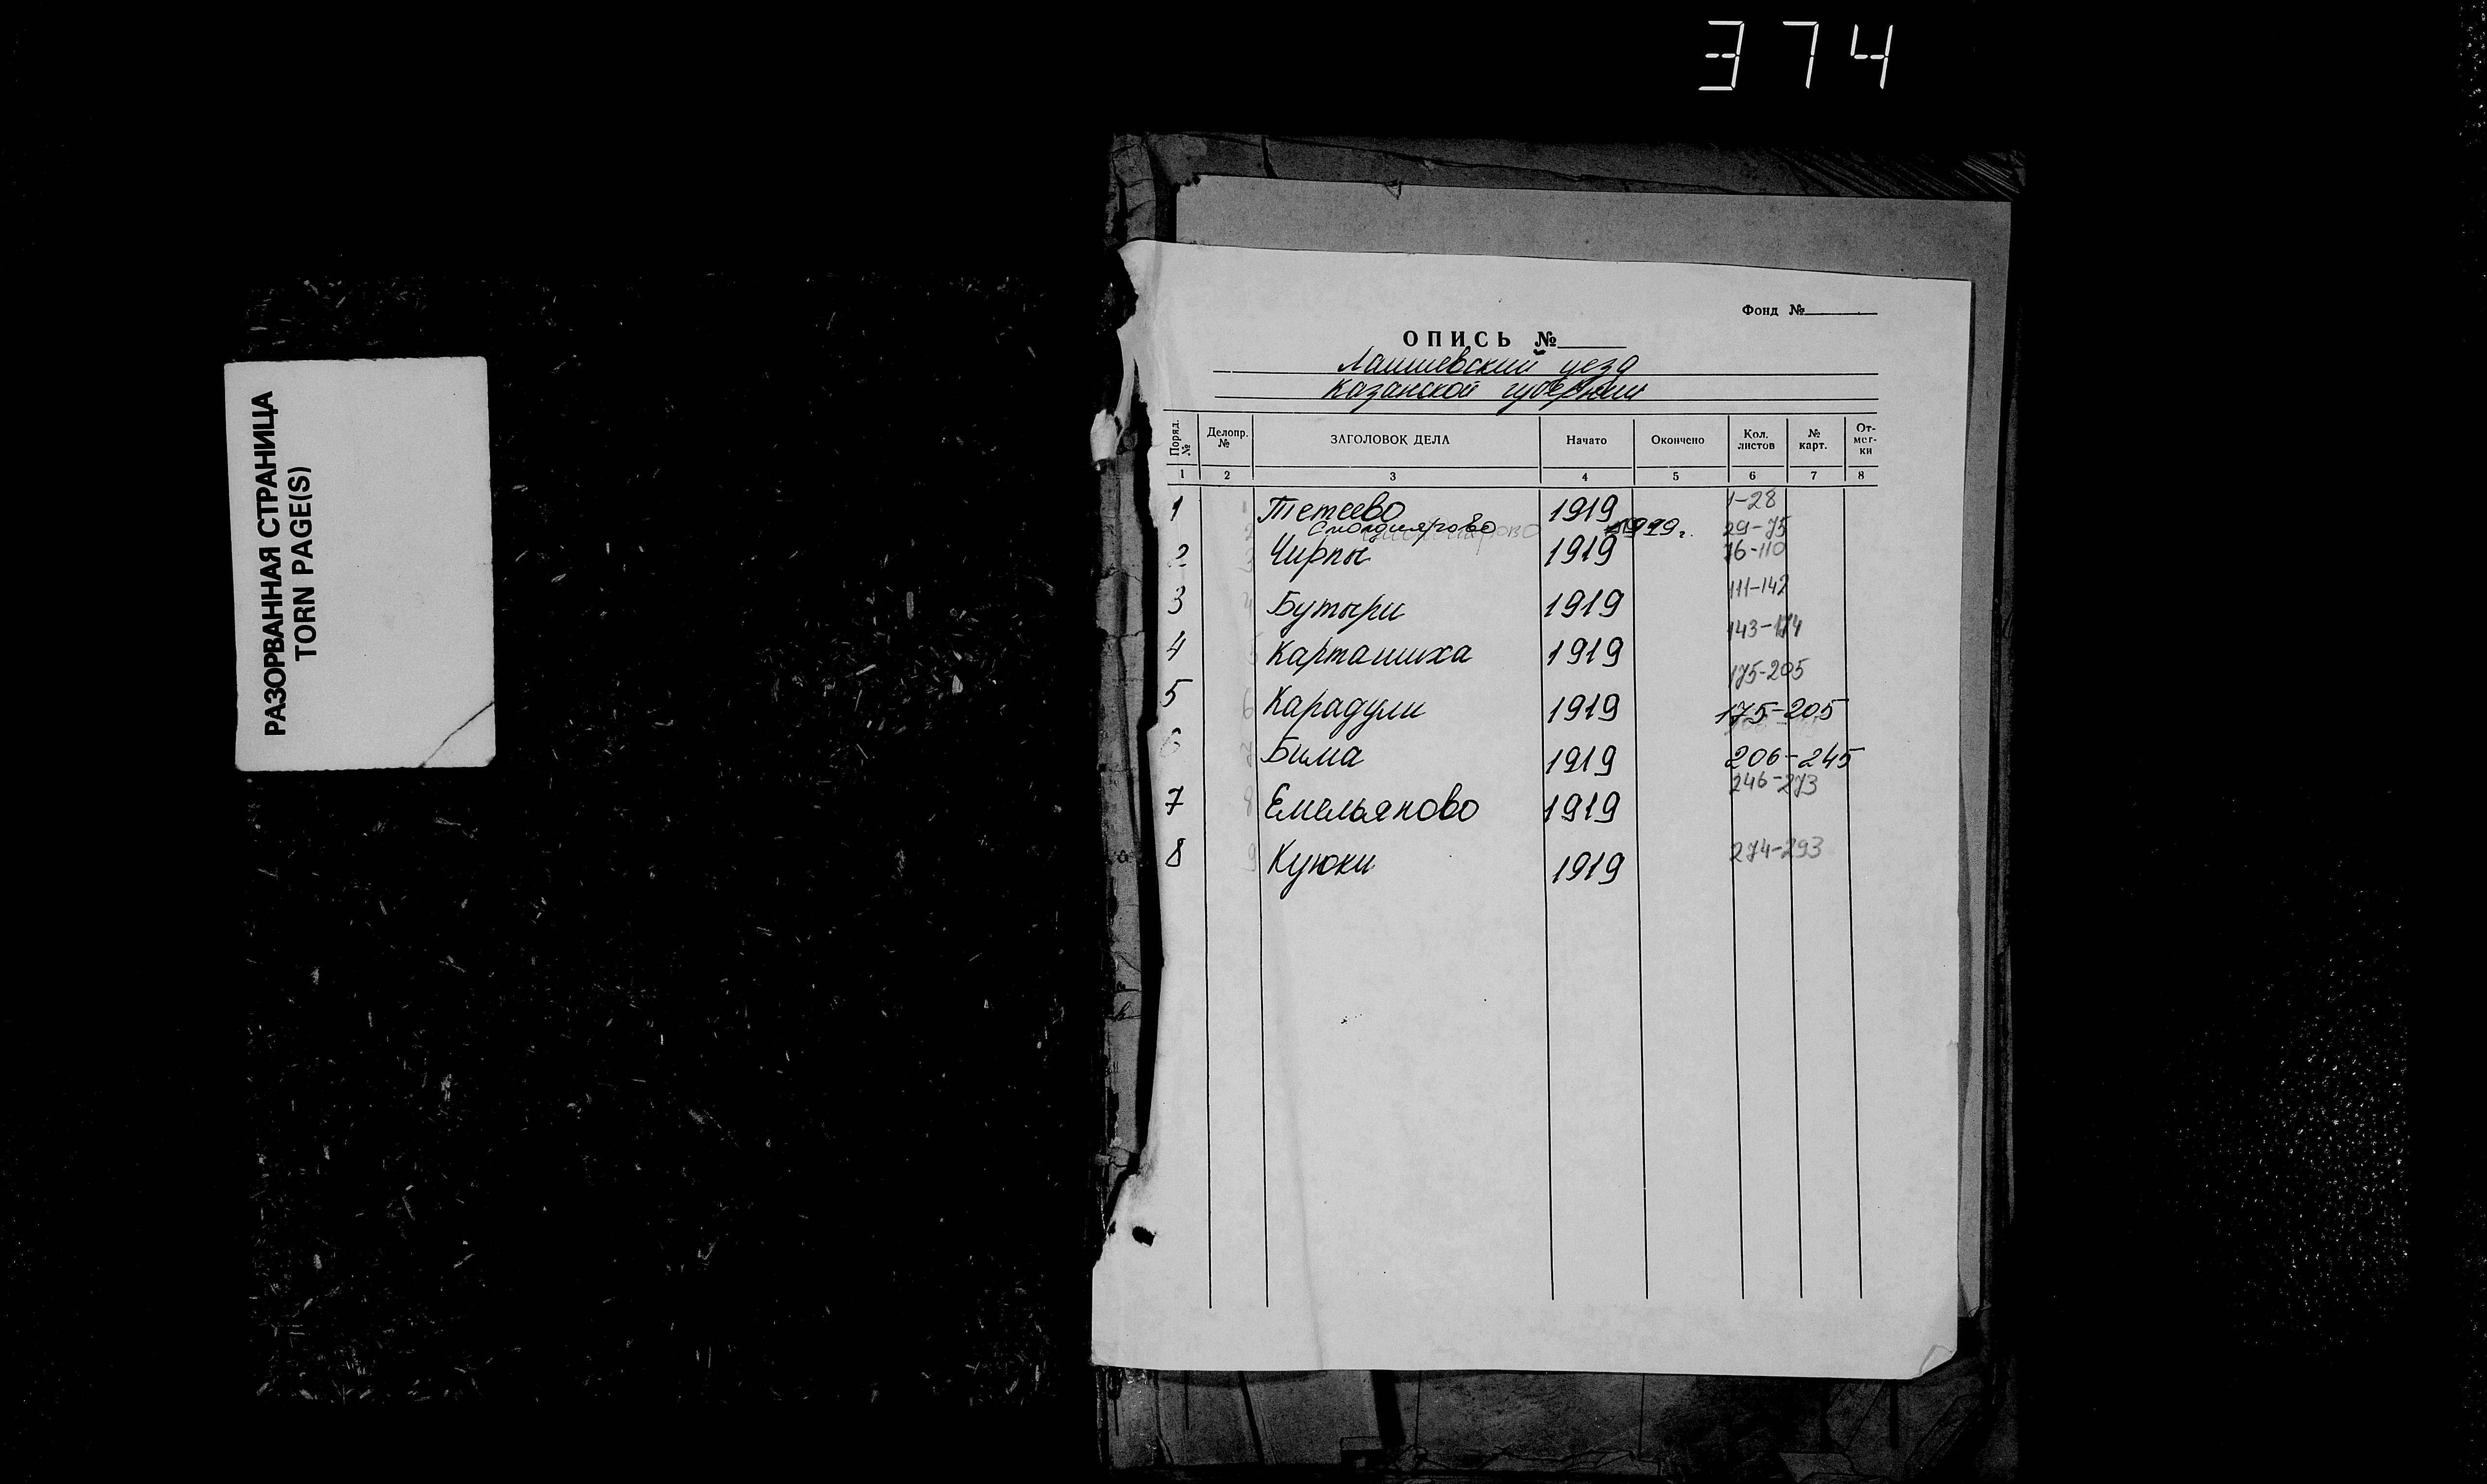 374
РАЗОРВАННАЯ СТРАНИЦА
TORN PAGE(S)
Фонд №
ОПИСЬ №
Лаишевский уезд
Казанской губернии
Поряд. № Делопр. № ЗАГОЛОВОК ДЕЛА Начато Окончено Кол. листов № карт. От-мет-ки
1 2 3 4 5 6 7 8
1 1 Тетеево 1919 1-28
2 Смолдиярово 1919г. 29-75
2 3 Чирпы 1919 76-110
111-142
3 4 Бутыри 1919
143-174
4 5 Карташиха 1919
175-205
5 6 Карадули 1919 175-205
6 7 Бима 1919 206-245
246-273
7 8 Емельяново 1919
274-293
8 9 Куюки 1919